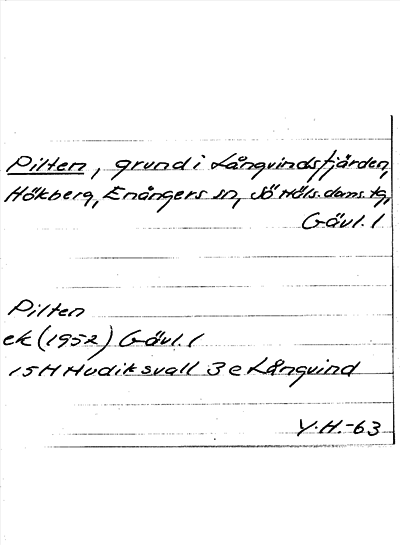 Pilten, grund i Långvindsfjärden,
Hökberg, Enångers sn, Sö Häls. doms. tg,
Gävl. l
Pilten
ek (1952) Gävl. l
15 H Hudiksvall 3 e Långvind
Y.H.-63